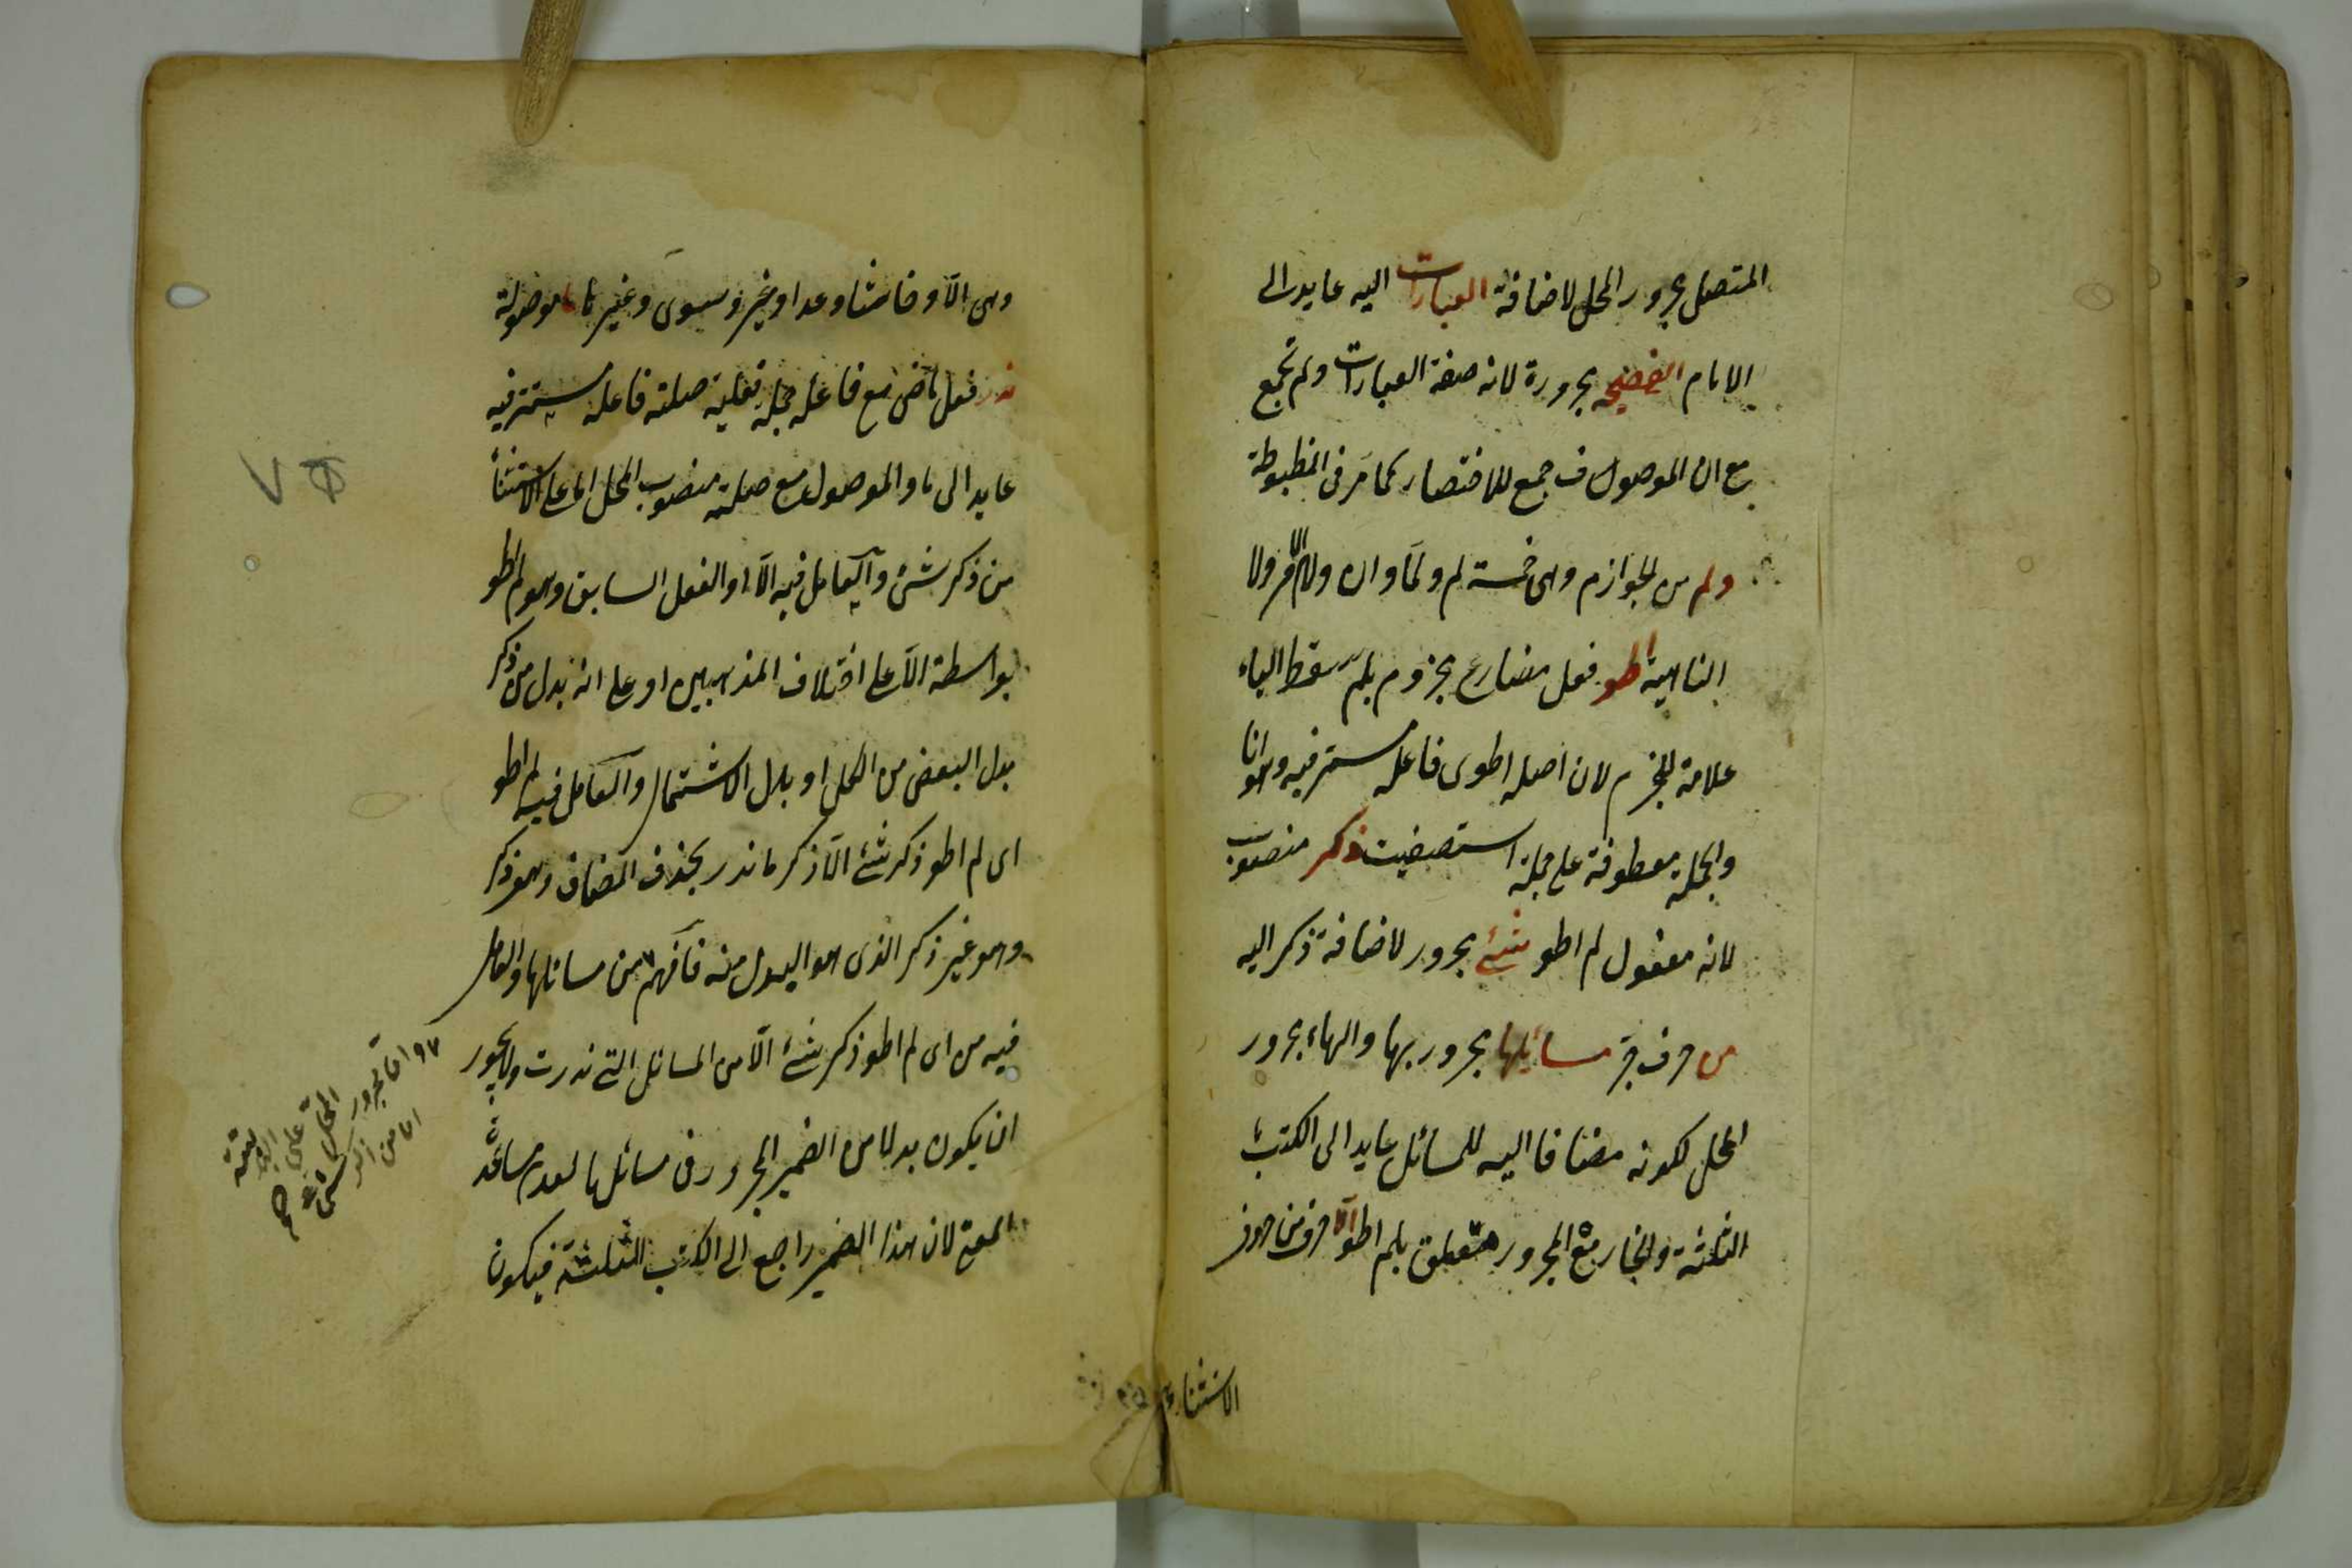 المتصل مجرور المحل لاضافة العبارات اليه عايد الى
الامام الفصيحة مجرورة لانه صفة العبارات ولم تجمع
مع ان الموصوف جمع للاختصار كما مر فى المضبوطة
ولم من الجوازم وهى خمسة لم ولما وان ولام الامر ولا
الناهية اطو فعل مضارع مجزوم بلم سقط الياء
علامة للجزم لان اصله اطوى فاعله مستتر فيه وهو انا
والجملة معطوفة على جملة استصفيت ذكر منصوب
لانه مفعول لم اطو شئ مجرور لاضافة ذكر اليه
من حرف جر مسائلها مجرور بها والهاء مجرور
المحل لكونه مضافا اليه للمسائل عايد الى الكتب
الثلثة والجار مع المجرور متعلق بلم اطو الا حرف من حروف
الاستثناء
وهى الا وخاشا وعدا وغير وسوى وغيرها ما موصولة
ندر فعل ماض مع فاعله جملة فعلية صلته فاعله مستتر فيه
عايد الى ما والموصول مع صلته منصوب المحل اما على الاستثناء
من ذكر شئ والعامل فيه الا او الفعل السابق وهو لم اطو
بواسطة الا على اختلاف المذهبين او على انه بدل من ذكر
بدل البعض من الكل او بدل الاشتمال والعامل فيه لم اطو
اى لم اطو ذكر شئ الا ذكر ما ندر بحذف المضاف وهو ذكر
وهو غير ذكر الذى هو المبدل منه فافهم من مسائلها والعامل
فيه من اى لم اطو ذكر شئ الا من المسائل التى ندرت ولا يجوز
ان يكون بدلا من الضمير المجرور فى مسائلها لعدم مساعدة
المعنى لان هذا الضمير راجع الى الكتب الثلثة فيكون
اما مجرور
المحل
على
اما من
شئ